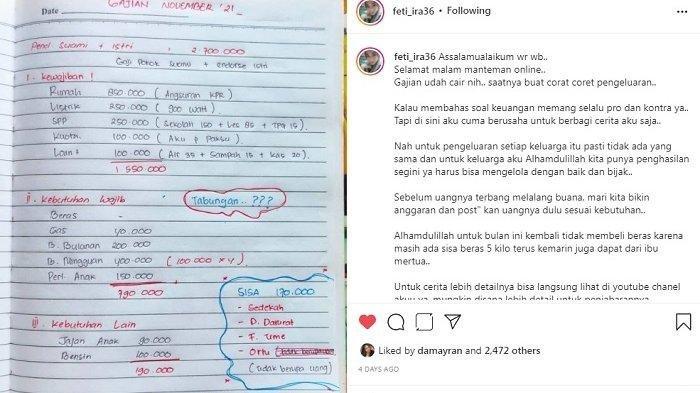 Date
GAJIAN NOVEMBER '21
Pend Suami + Istri : 2.700.000
Gaji Pokok Suami + endorse istri
I. Kewajiban !
Rumah 850.000 (Angsuran KPR)
Listrik 250.000 (900 Watt)
SPP 250.000 (Sekolah 150 + Les 85 + TPQ 15)
Kuota 100.000 (Aku & Paksu)
Lain² 100.000 (Air 35 + Sampah 15 + Kas 20)
1.550.000
ii. Kebutuhan Wajib
Tabungan..???
Beras -
Gas 40.000
B. Bulanan 200.000
B. Mingguan 400.000 (100.000 x 4)
Perl. Anak 150.000
790.000
iii. Kebutuhan Lain
Jajan Anak 90.000
Bensin 100.000
190.000
SISA 170.000
- Sedekah
- D. Darurat
- F. Time
- Ortu
(Tidak berupa uang)
feti_ira36 • Following
feti_ira36 Assalamualaikum wr wb..
Selamat malam manteman online..
Gajian udah cair nih.. saatnya buat corat coret pengeluaran..
Kalau membahas soal keuangan memang selalu pro dan kontra ya..
Tapi di sini aku cuma berusaha untuk berbagi cerita aku saja..
Nah untuk pengeluaran setiap keluarga itu pasti tidak ada yang
sama dan untuk keluarga aku Alhamdulillah kita punya penghasilan
segini ya harus bisa mengelola dengan baik dan bijak..
Sebelum uangnya terbang melalang buana, mari kita bikin
anggaran dan post" kan uangnya dulu sesuai kebutuhan..
Alhamdulillah untuk bulan ini kembali tidak membeli beras karena
masih ada sisa beras 5 kilo terus kemarin juga dapat dari ibu
mertua..
Untuk cerita lebih detailnya bisa langsung lihat di youtube chanel
akuu ya, mungkin disana lebih detail untuk penjabarannya
Liked by damayran and 2,472 others
4 DAYS AGO